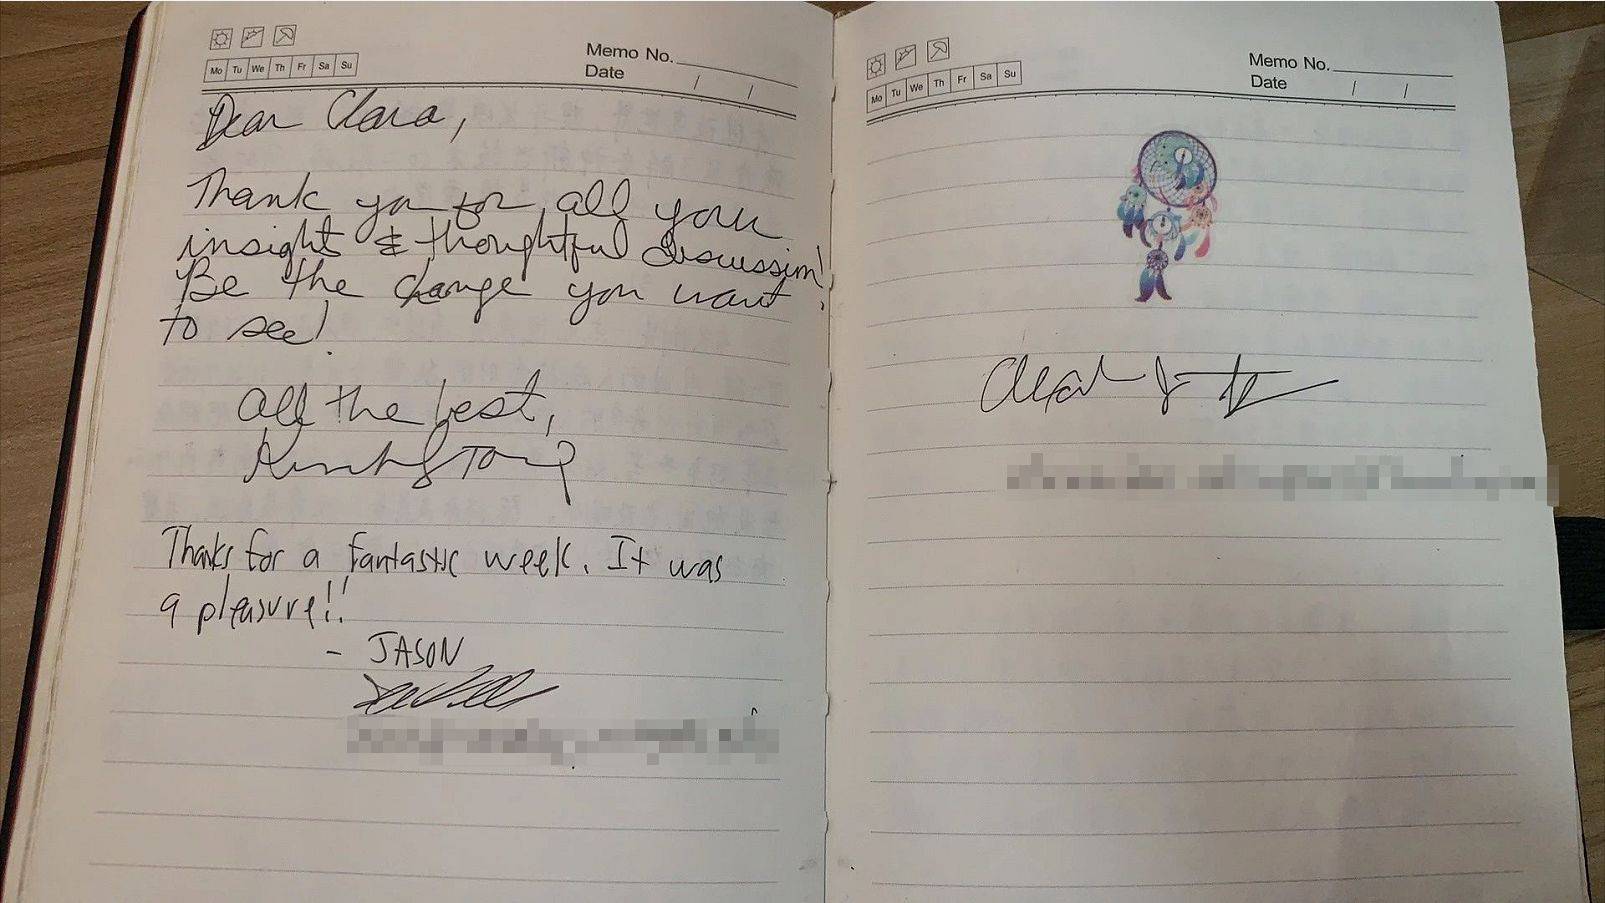 Mo Tu We Th Fr Sa Su
Memo No.
Date / /
Dear Clara,
Thank you for all your
insight & thoughtful discussion!
Be the change you want
to see!
All the best,
Thanks for a fantastic week. It was
a pleasure!!
- JASON
Mo Tu We Th Fr Sa Su
Memo No.
Date / /